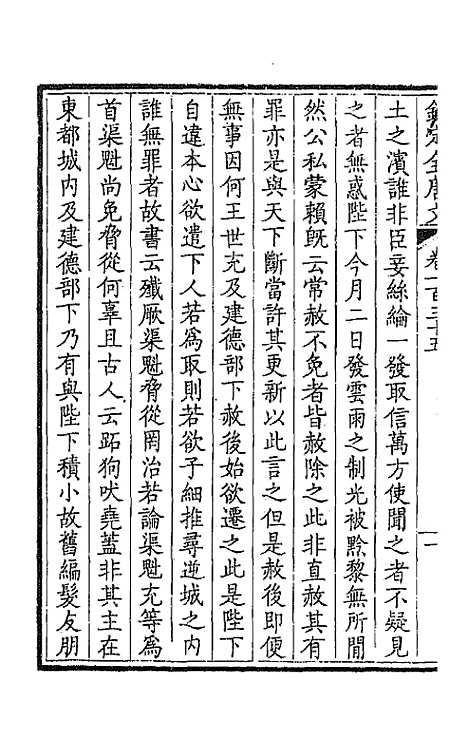 欽定全唐文
卷一百三十五
一
土之濱誰非臣妾絲綸一發取信萬方使聞之者不疑見
之者無惑陛下今月二日發雲雨之制光被黔黎無所閒
然公私蒙賴旣云常赦不免者皆赦除之此非直赦其有
罪亦是與天下斷當許其更新以此言之但是赦後即便
無事因何王世充及建德部下赦後始欲遷之此是陛下
自違本心欲遣下人若爲取則若欲子細推尋逆城之內
誰無罪者故書云殲厥渠魁脅從罔治若論渠魁充等爲
首渠魁尚免脅從何辜且古人云跖狗吠堯蓋非其主在
東都城內及建德部下乃有與陛下積小故舊編髮友朋